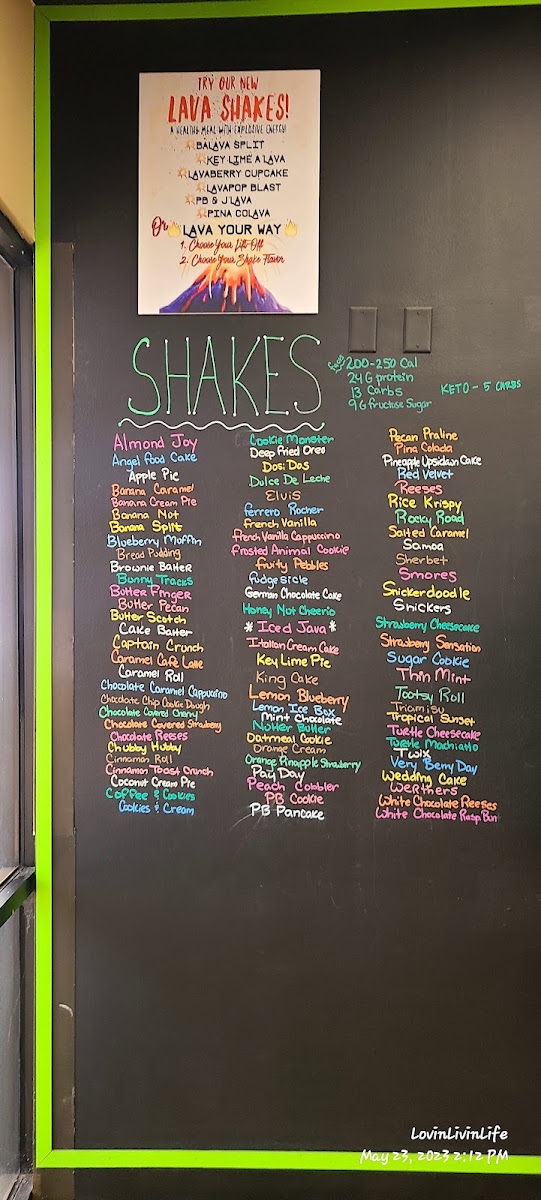 TRY OUR NEW
LAVA SHAKES!
A HEALTHY MEAL WITH EXPLOSIVE ENERGY!
BALAVA SPLIT
KEY LIME A LAVA
LAVABERRY CUPCAKE
LAVAPOP BLAST
PB & J LAVA
PINA COLAVA
Or LAVA YOUR WAY
1. Choose Your Lift-Off
2. Choose Your Shake Flavor
SHAKES
200-250 Cal
24 G protein
13 Carbs
9 G fructose Sugar
KETO - 5 CARBS
Almond Joy
Angel Food Cake
Apple Pie
Banana Caramel
Banana Cream Pie
Banana Nut
Banana Split
Blueberry Muffin
Bread Pudding
Brownie Batter
Bunny Tracks
Butter Finger
Butter Pecan
Butter Scotch
Cake Batter
Captain Crunch
Caramel Café Latte
Caramel Roll
Chocolate Caramel Cappuccino
Chocolate Chip Cookie Dough
Chocolate Covered Cherry
Chocolate Covered Strawberry
Chocolate Reeses
Chubby Hubby
Cinnamon Roll
Cinnamon Toast Crunch
Coconut Cream Pie
Coffee & Cookies
Cookies & Cream
Cookie Monster
Deep Fried Oreo
Dosi Dos
Dulce De Leche
Elvis
Ferrero Rocher
French Vanilla
French Vanilla Cappuccino
Frosted Animal Cookie
Fruity Pebbles
Fudgesicle
German Chocolate Cake
Honey Nut Cheerio
*Iced Java*
Italian Cream Cake
Key Lime Pie
King Cake
Lemon Blueberry
Lemon Ice Box
Mint Chocolate
Nutter Butter
Oatmeal Cookie
Orange Cream
Orange Pinapple Strawberry
Pay Day
Peach Cobbler
PB Cookie
PB Pancake
Pecan Praline
Pina Colada
Pineapple Upsidown Cake
Red Velvet
Reeses
Rice Krispy
Rocky Road
Salted Caramel
Samoa
Sherbet
Smores
Snickerdoodle
Snickers
Strawberry Cheesecake
Strawberry Sensation
Sugar Cookie
Thin Mint
Tootsy Roll
Triamisu
Tropical Sunset
Turtle Cheesecake
Turtle Machiatto
Twix
Very Berry Day
Wedding Cake
Werthers
White Chocolate Reeses
White Chocolate Rasp. Bun
LovinLivinLife
May 23, 2023 2:12 PM